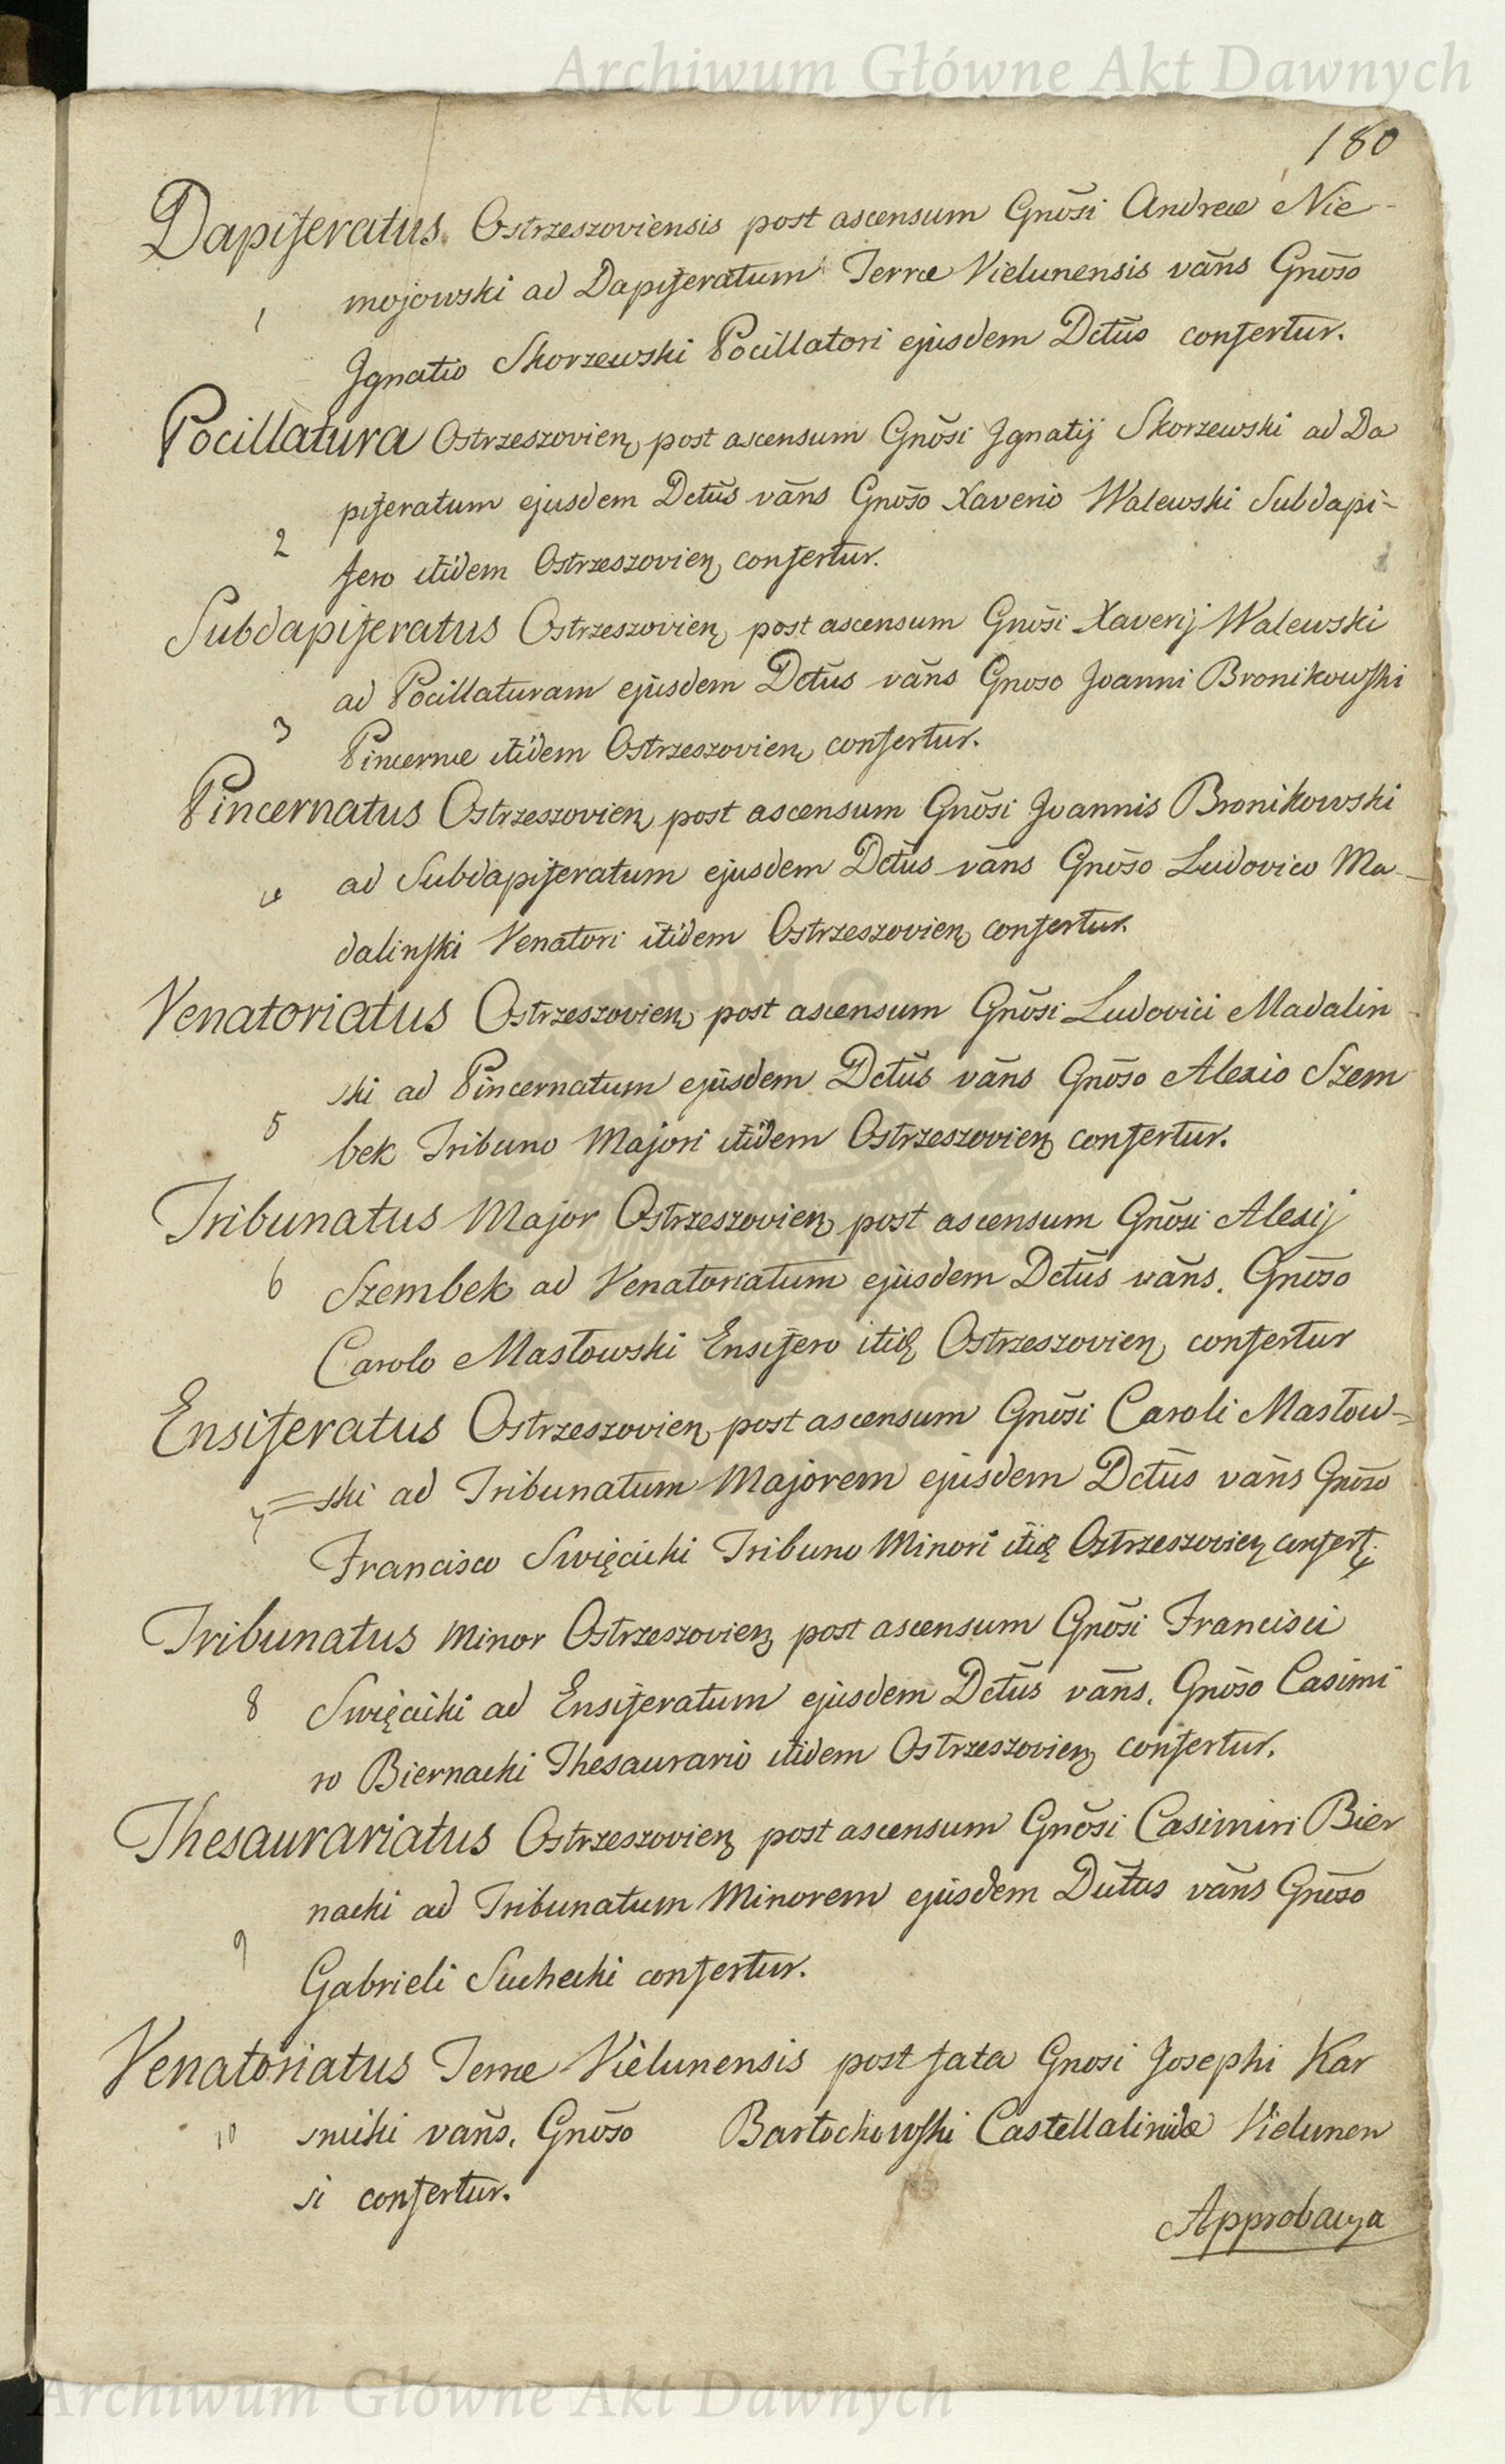 Archiwum Główne Akt Dawnych
180
Dapiferatus Ostrzeszoviensis post ascensum Gnōsi Andreæ Nie-
1 mojowski ad Dapiferatum Terræ Vielunensis vāns Gnōso
Ignatio Skorzewski Pocillatori ejusdem Dctūs confertur.
Pocillatura Ostrzeszovien, post ascensum Gnōsi Ignatij Skorzewski ad Da
piferatum ejusdem Dctūs vāns Gnōso Xaverio Walewski Subdapi-
2 fero itidem Ostrzeszovien, confertur.
Subdapiferatus Ostrzeszovien, post ascensum Gnōsi Xaverij Walewski
ad Pocillaturam ejusdem Dctūs vāns Gnoso Joanni Bronikowski
3 Pincernæ itidem Ostrzeszovien, confertur.
Pincernatus Ostrzeszovien, post ascensum Gnōsi Joannis Bronikowski
4 ad Subdapiferatum ejusdem Dctūs vāns Gnōso Ludovico Ma-
dalinski Venatori itidem Ostrzeszovien, confertur.
Venatoriatus Ostrzeszovien, post ascensum Gnōsi Ludovici Madalin-
ski ad Pincernatum ejusdem Dctūs vāns Gnōso Alexio Szem
5 bek Tribuno Majori itidem Ostrzeszovien, confertur.
Tribunatus Major Ostrzeszovien, post ascensum Gnōsi Alexij
6 Szembek ad Venatoriatum ejusdem Dctūs vāns. Gnōso
Carolo Masłowski Ensifero itid, Ostrzeszovien, confertur
Ensiferatus Ostrzeszovien, post ascensum Gnōsi Caroli Masłow=
7 =ski ad Tribunatum Majorem ejusdem Dctūs vāns Gnōso
Francisco Swięcicki Tribuno Minori itid, Ostrzeszovien, confert,.
Tribunatus Minor Ostrzeszovien, post ascensum Gnōsi Francisci
8 Swięcicki ad Ensiferatum ejusdem Dctūs vāns. Gnōso Casimi
ro Biernacki Thesaurario itidem Ostrzeszovien, confertur.
Thesaurariatus Ostrzeszovien, post ascensum Gnōsi Casimiri Bier
nacki ad Tribunatum Minorem ejusdem Dctūs vāns Gnōso
9 Gabrieli Suchecki confertur.
Venatoriatus Terræ Vielunensis post fata Gnosi Josephi Kar
10 snicki vāns. Gnōso Bartochowski Castellanidæ Vielunen
si confertur.
Approbacya
Archiwum Główne Akt Dawnych